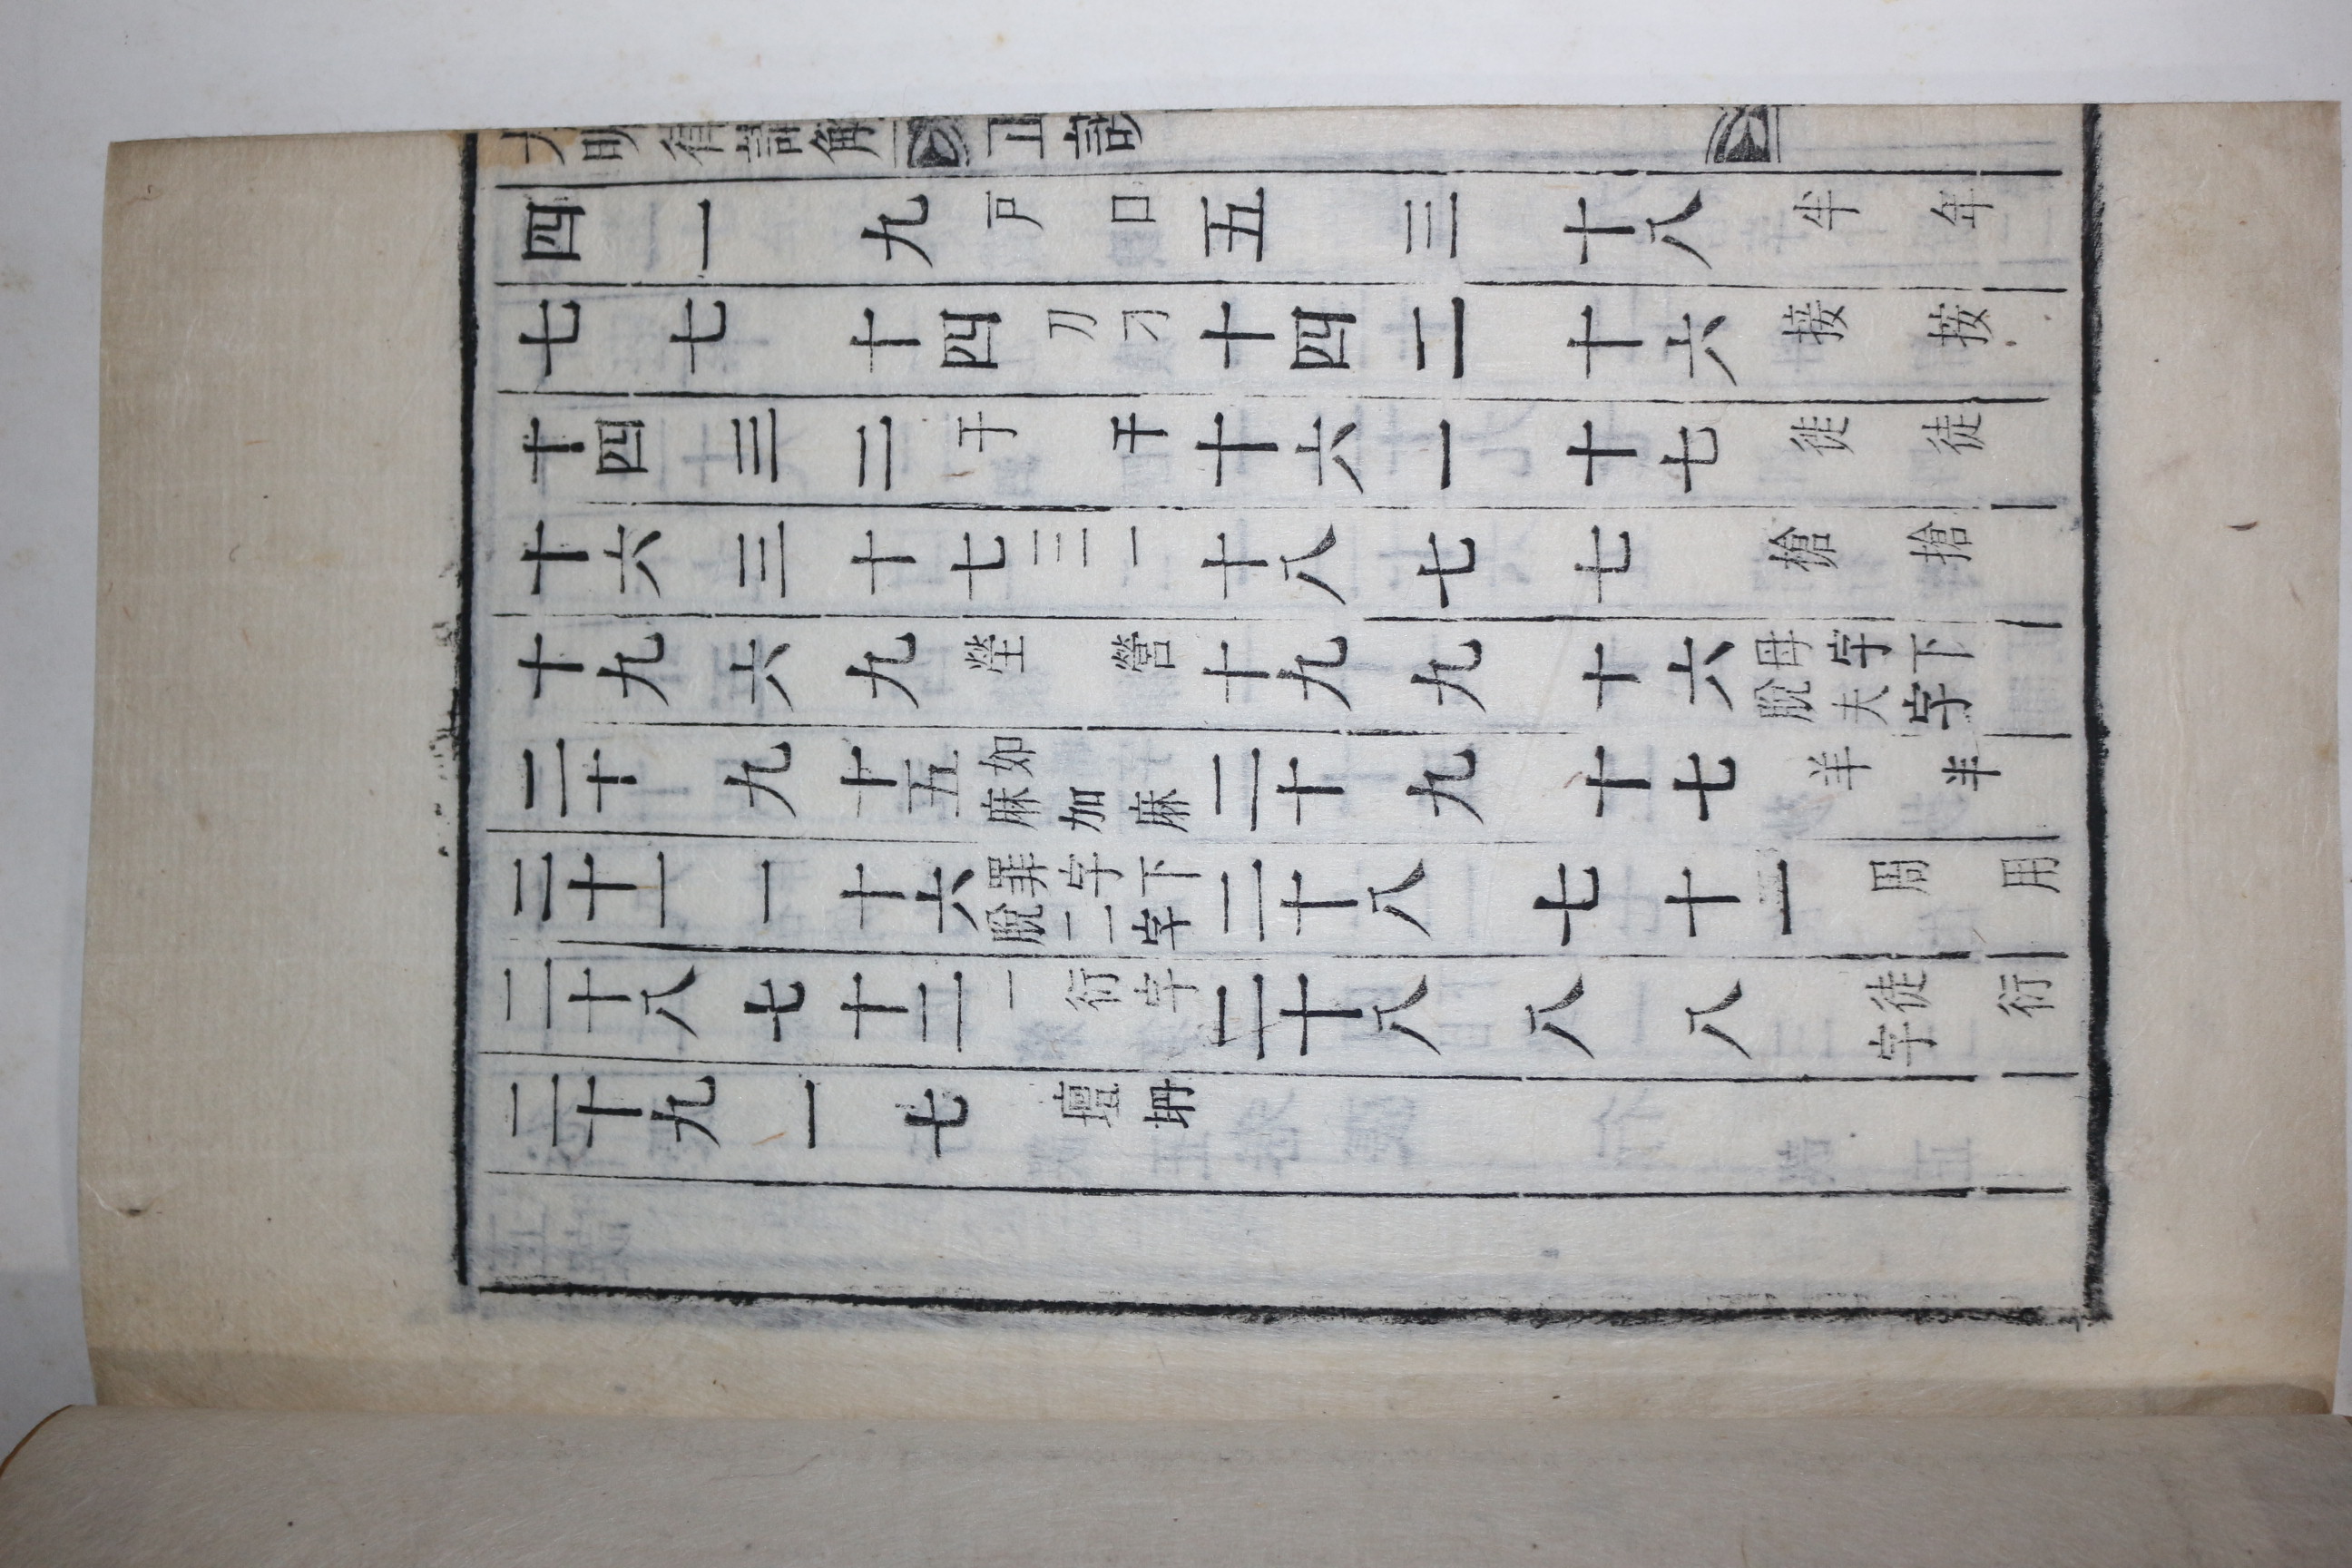 大明律講解 正誤
四 一 九 戸 口 五 三 十八 半 年
七 七 十四 刀 刁 十四 二 十六 接 按
十四 三 二 于 干 十六 一 十七 徙 徒
十六 三 十七 三 一 十八 七 七 槍 搶
十九 六 九 塋 營 十九 九 十六 母字下脫夫字
二十 九 十五 如麻 加麻 二十 九 十七 羊 半
二十一 一 十六 罪字下脫二字 二十八 七 十一 周 用
二十八 七 十二 一 衍字 二十八 八 八 徒字 衍
二十九 一 七 壇 坍